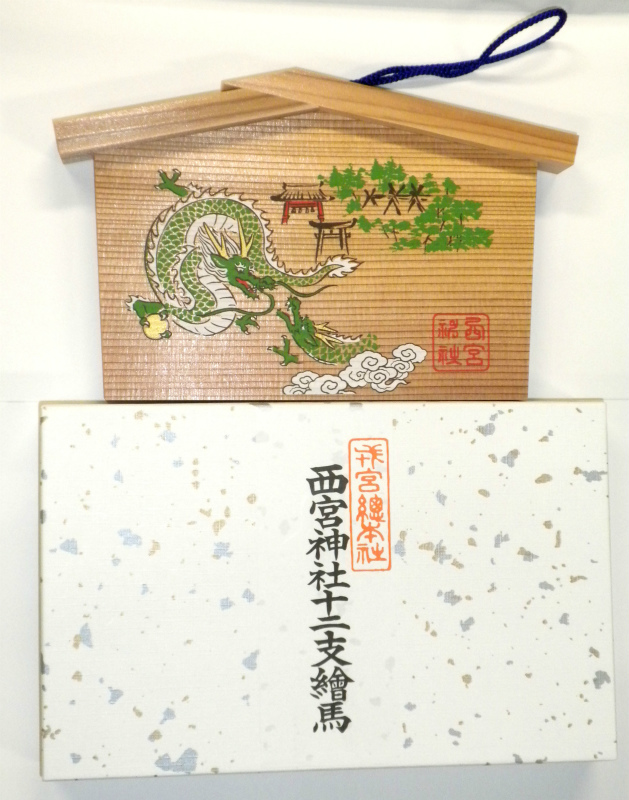 西宮
神社
戎宮總本社
西宮神社十二支繪馬